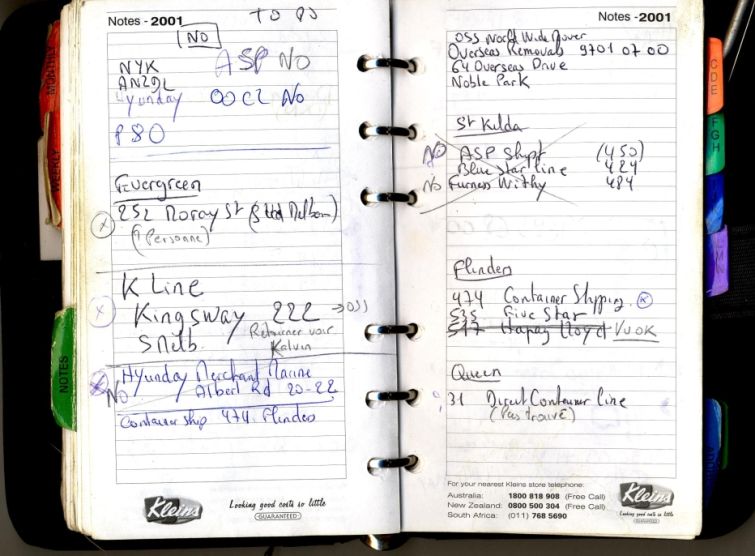 Notes - 2001
NO
NYK
ASP NO
ANZDL
Hyunday
OOCL No
P&O
Evergreen
252 Moray St (Sud Melbourn)
(1 Personne)
K Line
Kingsway 222 → OSS
S Melb. Retourner voir
Kalvin
Hyunday Merchant Marine
NO Albert Rd 20-22
Container ship 474 Flinders
Kleins
Looking good costs so little
GUARANTEED
Notes - 2001
OSS World Wide Mover
Overseas Removals 9701 07 00
64 Overseas Drive
Noble Park
St Kilda
No ASP Shpt (450)
Blue Star line 424
No Furness Withy 484
Flinders
474 Container Shipping K
535 Five Star
517 Hapag Lloyd VU OK
Queen
31 Direct Container Line
(Pas trouvé)
For your nearest Kleins store telephone:
Australia: 1800 818 908 (Free Call)
New Zealand: 0800 500 304 (Free Call)
South Africa: (011) 768 5690
Kleins
Looking good costs so little
GUARANTEED
MONTHLY
WEEKLY
NOTES
C
D E
F
G H
L
M